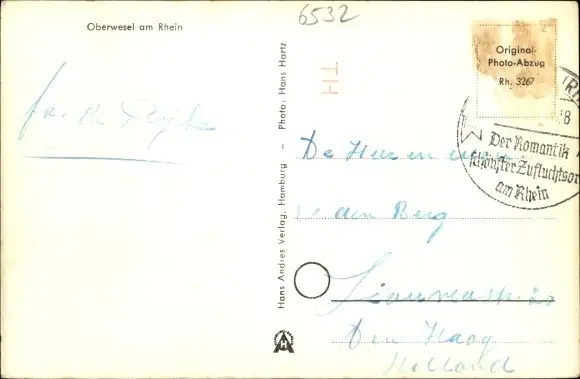 6532
Oberwesel am Rhein
Original-
Photo-Abzug
Rh. 3267
TH
8
Der Romantik
schönster Zufluchtsor
am Rhein
Hans Andres Verlag, Hamburg – Photo: Hans Hartz
De Heer en
v. den Berg
20
Den Haag
Holland
AH